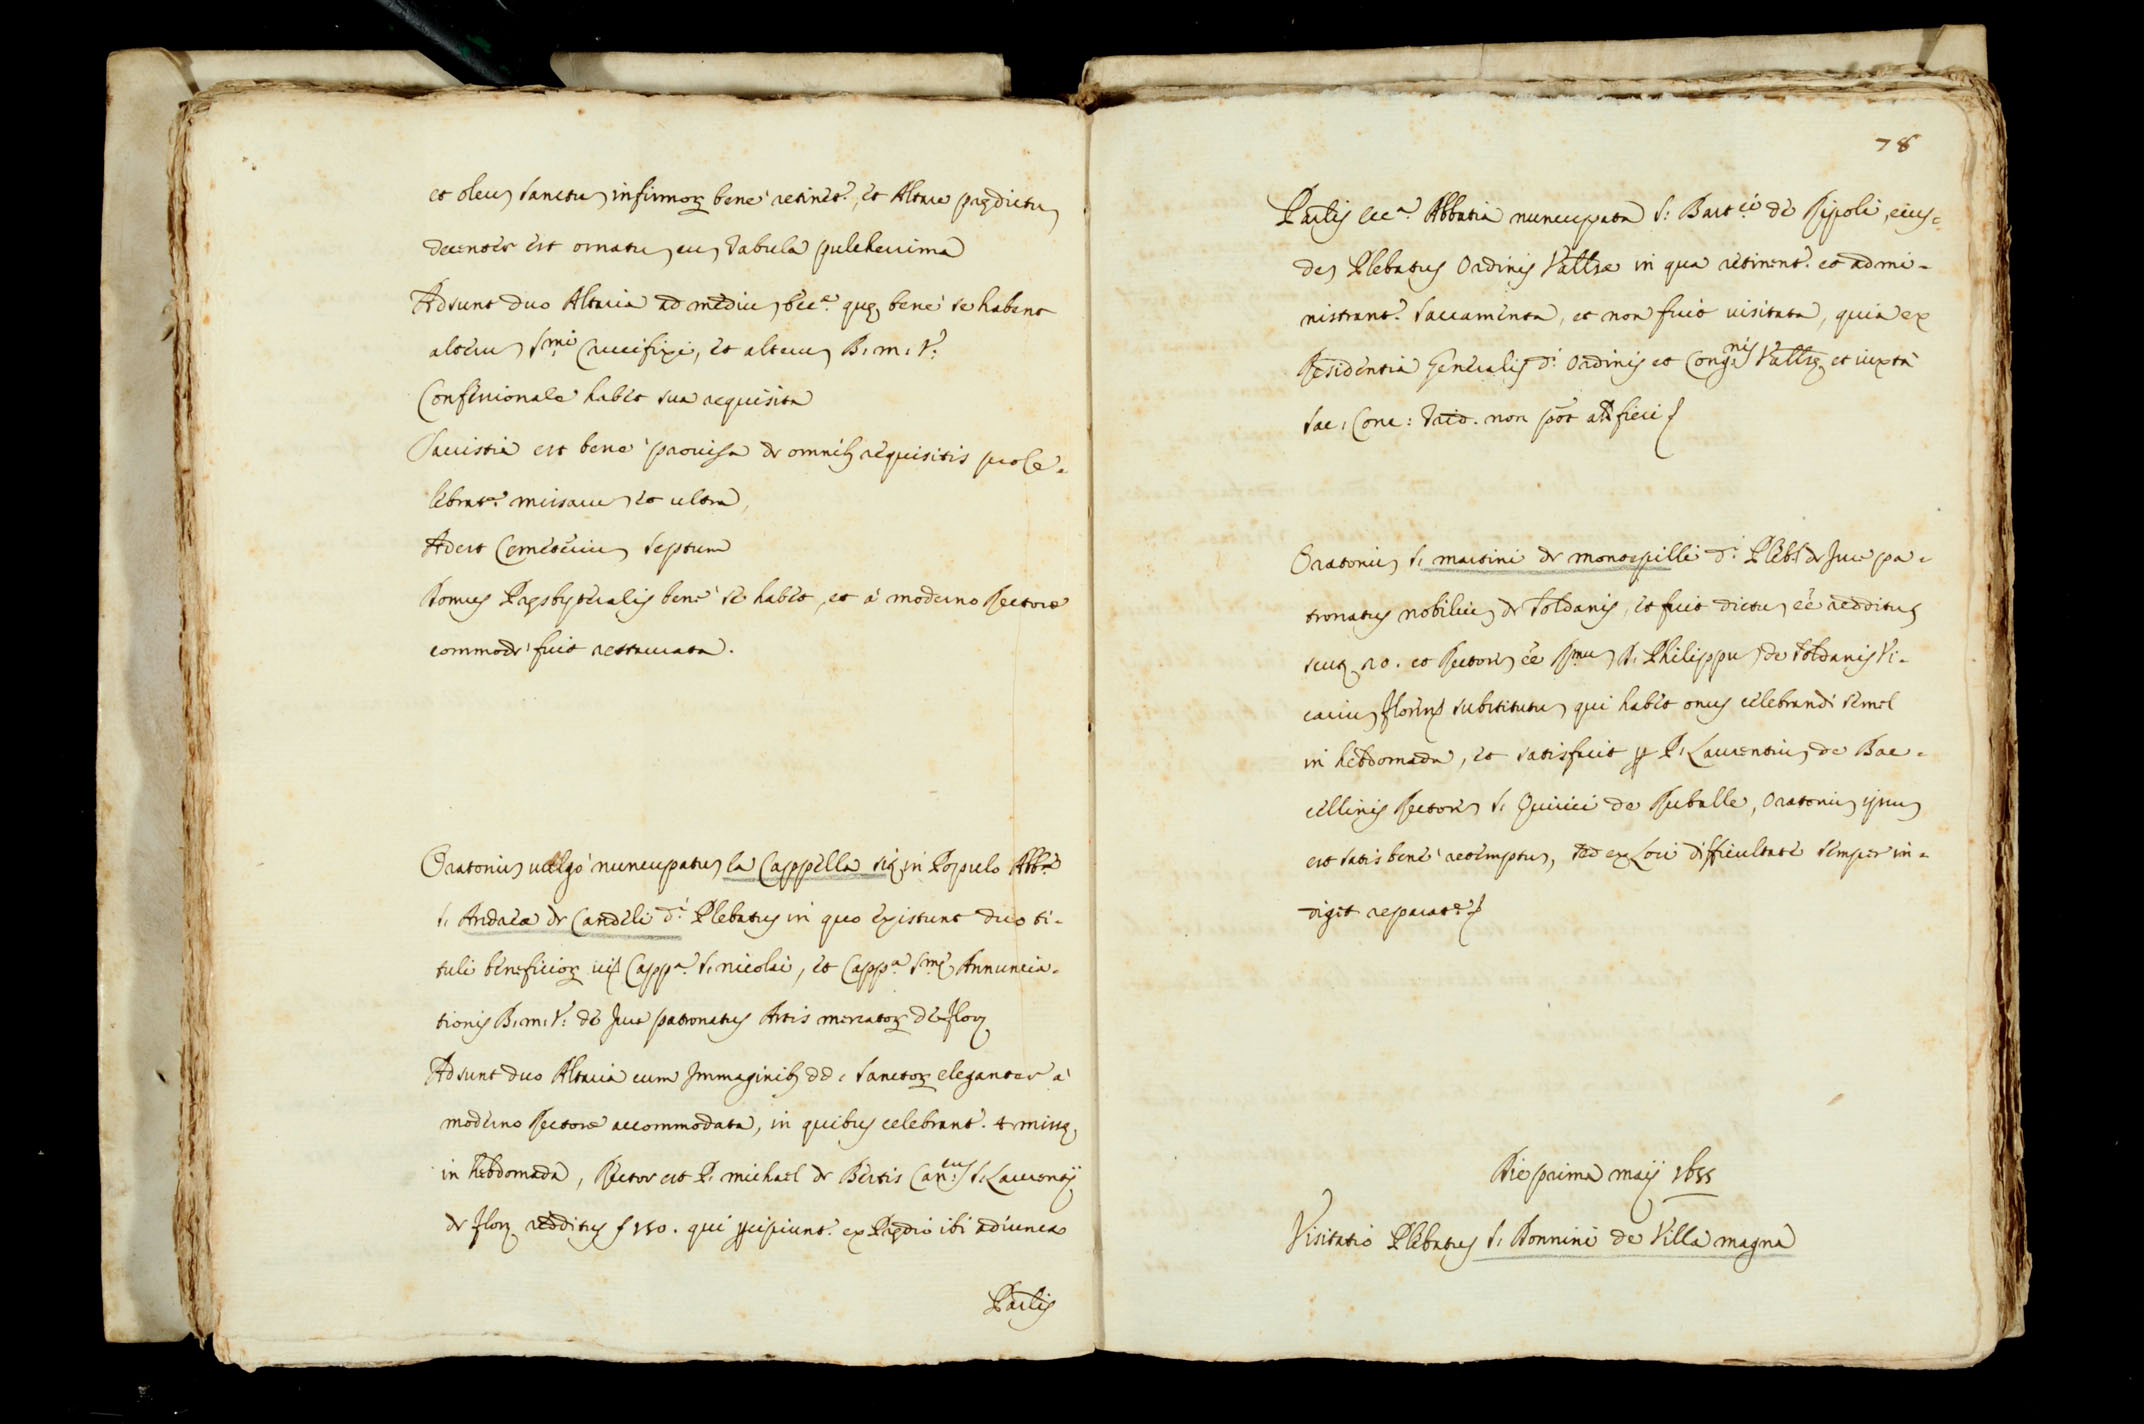 et oleũ sanctũ infirmoꝝ bene retinet.ʳ, et Altare prędictũ
decenter est ornatũ cũ tabula pulcherrima
Adsunt duo Altaria ad mediũ Ecc.ᵃ quę bene se habent
alterũ S.ᵐⁱ Crucifixi, et alterũ B. M. V.
Confessionale habet sua requisita
Sacristia est bene provisa de omnibȝ requisitis pro ce-
lebrat.ᵉ missarũ et ultra,
Adest Cemeteriũ septum
Domus Pręsbyteralis bene se habet, et à moderno Rectore
commode fuit restaurata.
Oratoriũ vulgò nuncupatũ la Cappella sita in Populo Abb.ᵉ
S. Andreæ de Candeli d.ⁱ Plebatus in quo existunt duo ti-
tuli beneficioꝝ vizt Capp.ᵃ S. Nicolai, et Capp.ᵃ S.ᵐę Annuncia-
tionis B. M. V. de Jure patronatus Artis mercatoꝝ de Flor.
Adsunt duo Altaria cum Immaginibȝ dd. Sanctoꝝ eleganter à
moderno Rectore accommodata, in quibus celebrant.ʳ 4 missę
in hebdomada, Rector est P. Michael de Bertis Can.ᶜᵘˢ S. Laurentij
de Flor. redditus ƒ 150. qui ꝑcipiunt.ʳ ex Prędio ibi adiuncto
Par.lis
78
Par.lis Ecc.ᵃ Abbatia nuncupata S. Bart.ᵉⁱ de Ripoli, eius-
dẽ Plebatus Ordinis Vallisæ in qua retinent.ʳ et admi-
nistrant.ʳ Sacramenta, et non fuit visitata, quia ex
Residentia Generalis d.ⁱ Ordinis et Cong.ⁿⁱˢ Vallisę et iuxta
Sac. Conc. Trid. non põt a nr̃ fieri
Oratoriũ S. Martini de Montepilli d.ⁱ Pleb.s de Jure pa-
tronatus nobiliũ de Soldanis, et fuit dictũ eẽ redditus
scut. 20. et Rectorẽ eẽ R.ᵐᵘ̃ D. Philippũ de Soldanis Vi-
cariũ Florinũ substitutũ qui habet onus celebrandi semel
in hebdomada, et satisfacit ꝑ P. Laurentiũ de Bac-
cellinis Rectorẽ S. Quirici de Ruballe, Oratoriũ ipsũ
est satis bene retemptũ, sed ex Loci difficultate semper in-
diget reparat.ᵉ
Die prima Maij 1655
Visitatio Plebatus S. Donnini de Villa magna